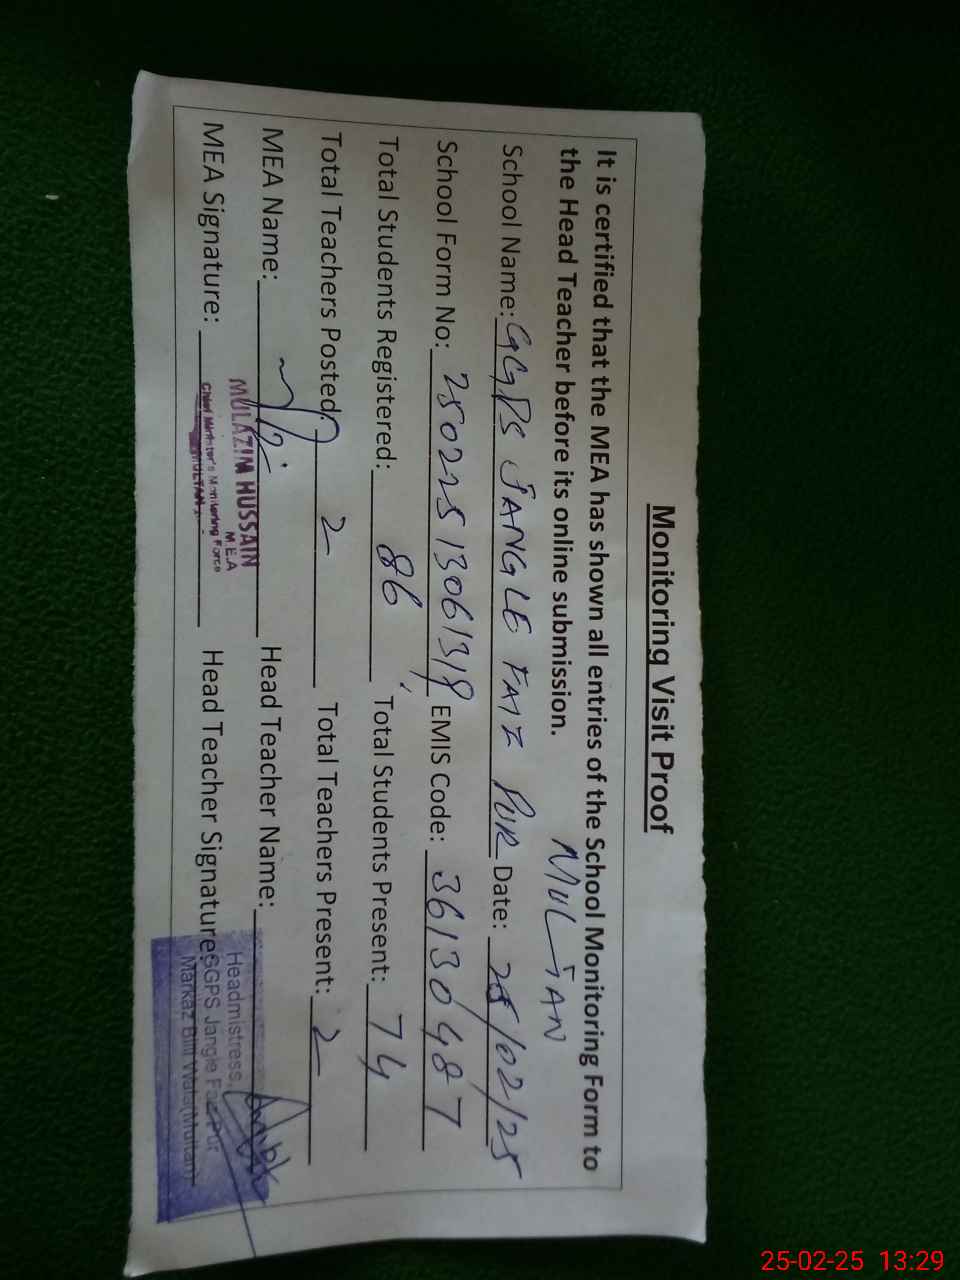 Monitoring Visit Proof
It is certified that the MEA has shown all entries of the School Monitoring Form to
the Head Teacher before its online submission.
MULTAN
School Name: GGPS JANGLE FAIZ PUR Date: 25/02/25
School Form No: 25022513061318 EMIS Code: 36130487
Total Students Registered: 86 Total Students Present: 74
Total Teachers Posted: 2 Total Teachers Present: 2
MEA Name: Head Teacher Name:
MULAZIM HUSSAIN
M.E.A
Chief Minister's Monitoring Force
MULTAN
MEA Signature: Head Teacher Signature:
Headmistress,
GGPS Jangle Faiz Pur
Markaz Billi Wala (Multan)
25-02-25 13:29